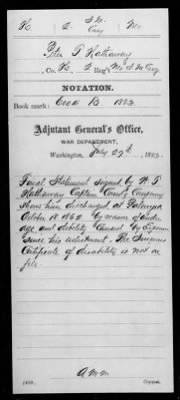 H. 2 S.M. Cav. Mo.
Peter T. Hathaway
, Co. H, 2 Reg't Mo. S. M. Cav.
NOTATION.
Book mark: B 1883
Adjutant General's Office,
WAR DEPARTMENT,
Washington, July 27th, 1883.
Final Statement signed by W. T.
Hathaway Captain Comdg Company
shows him discharged at Palmyra
October 18 1862 by reason of under
age and debility caused by exposure
since his enlistment. The Surgeons
Certificate of disability is not on
file
Copyist.